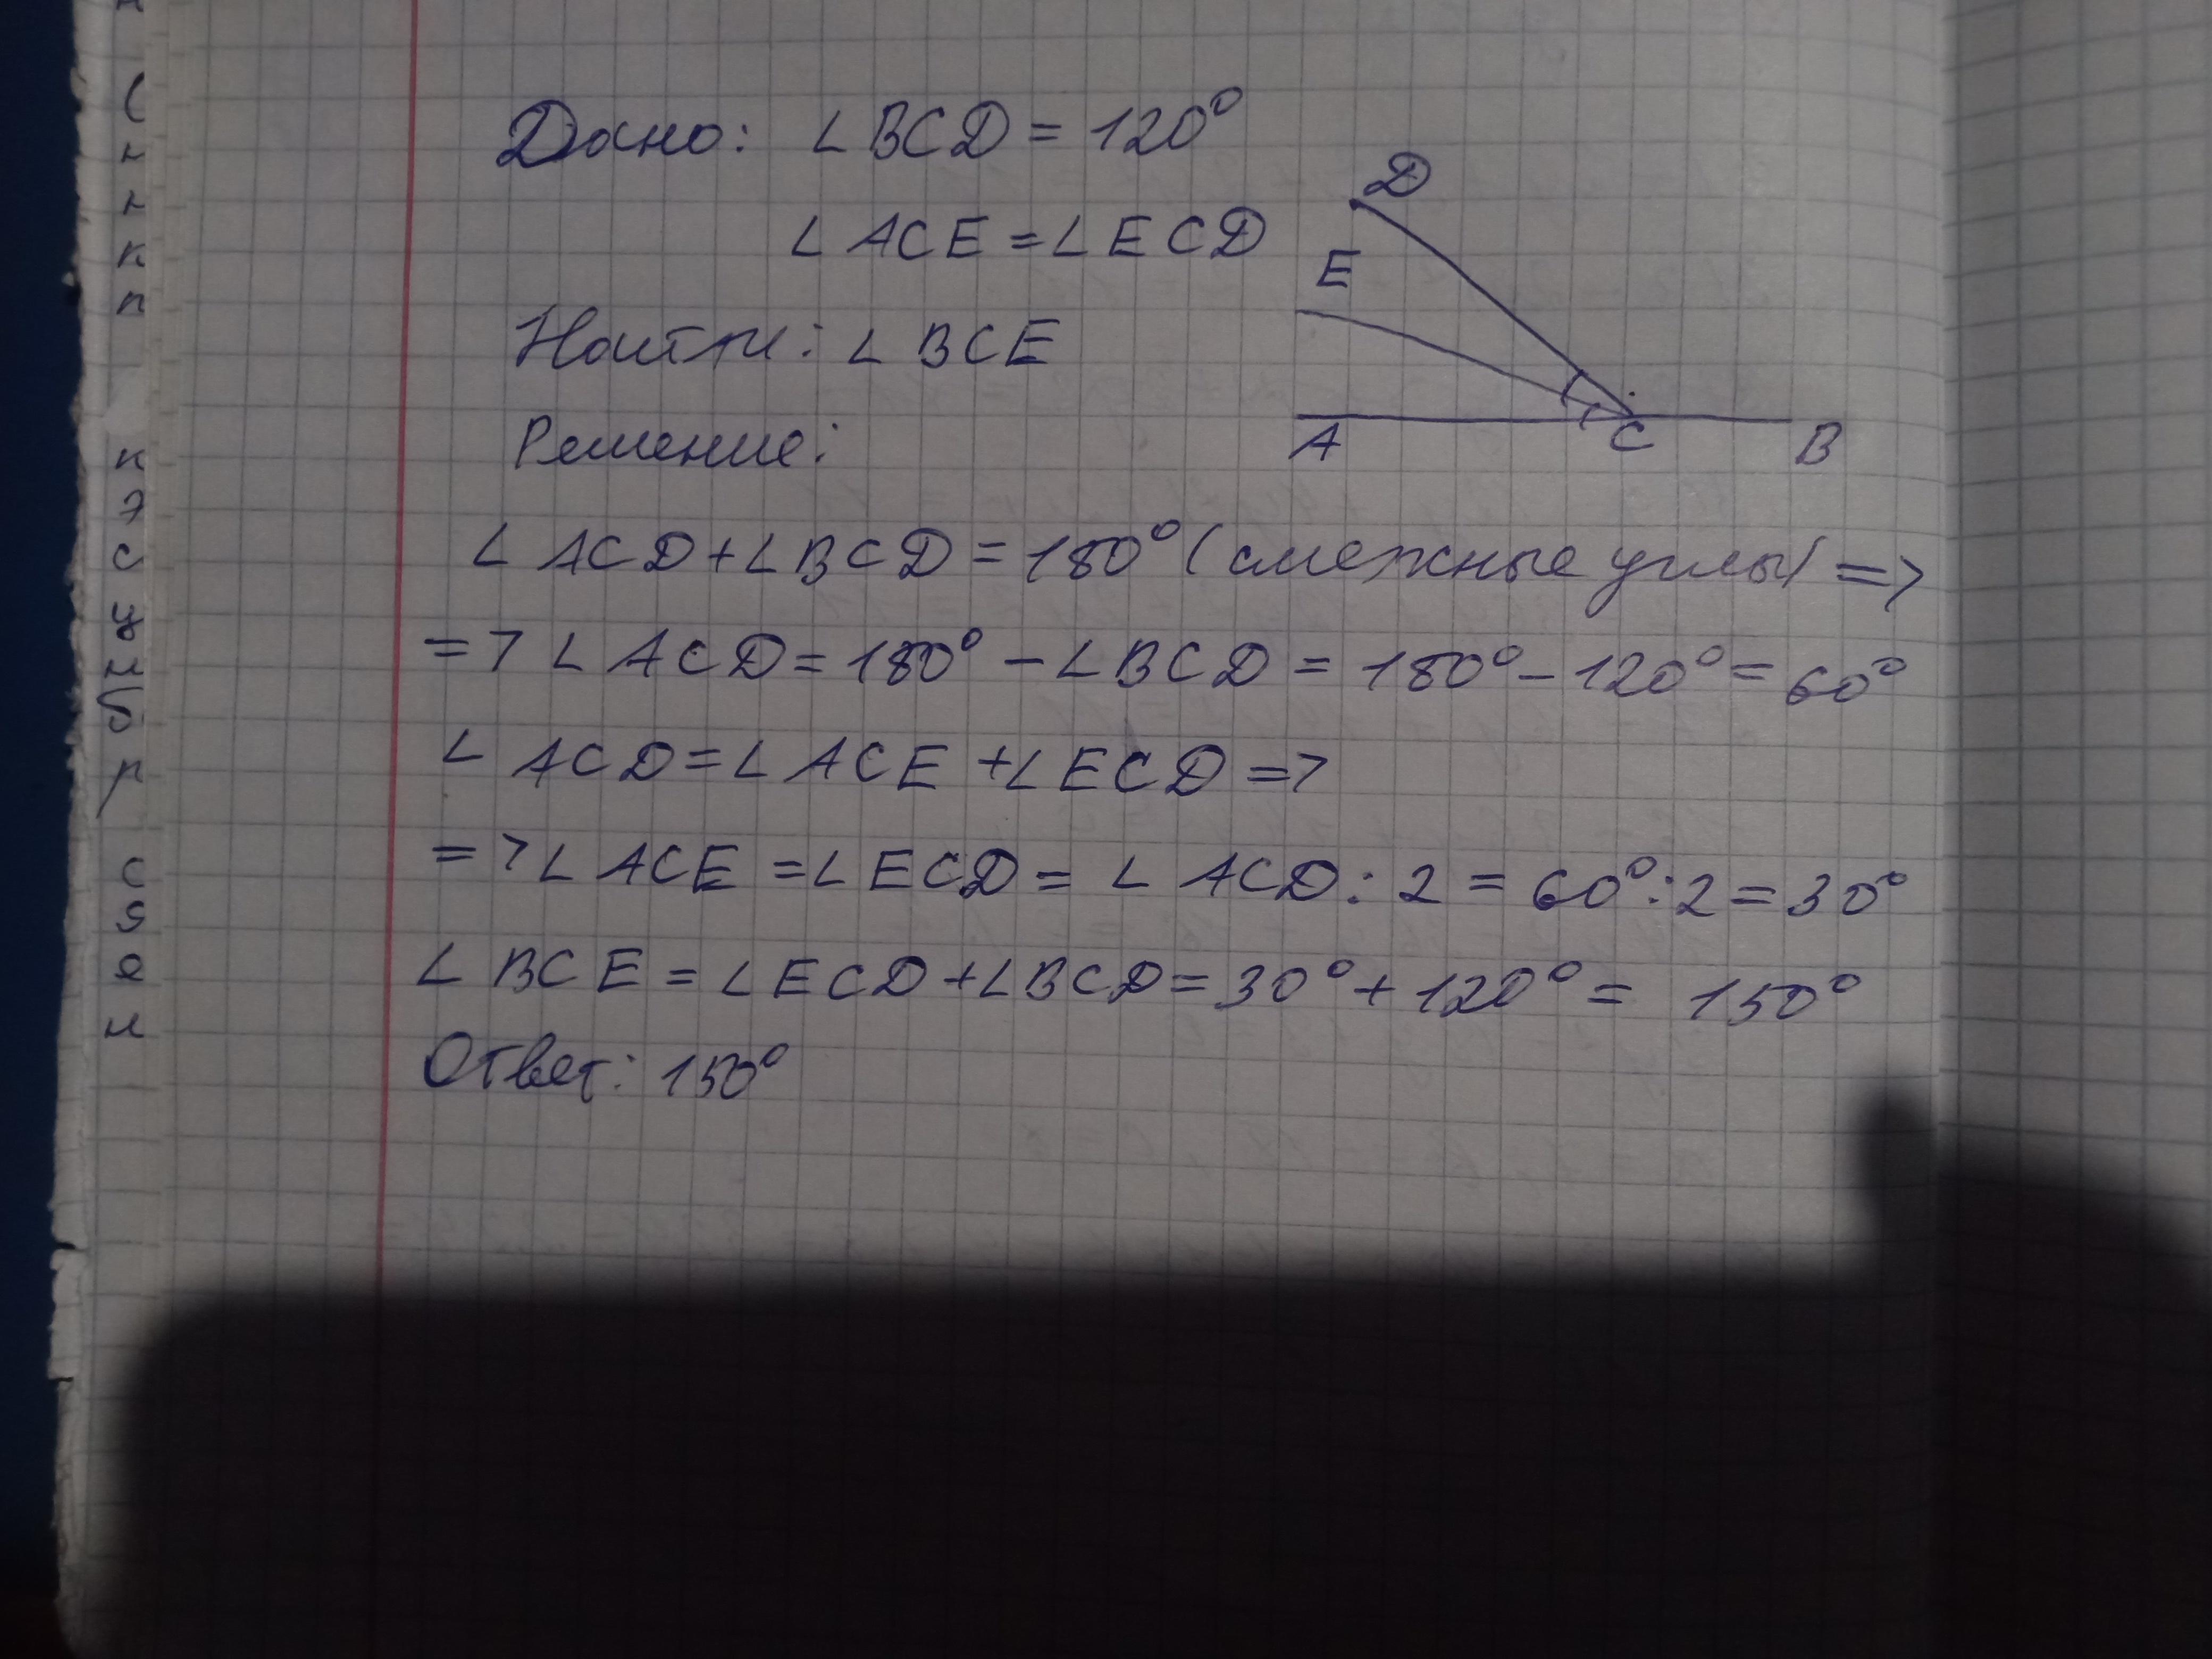 Дано: ∠BCD = 120°
∠ACE = ∠ECD
Найти: ∠BCE
Решение:
D
E
A
C
B
∠ACD + ∠BCD = 180° (смежные углы) =>
=> ∠ACD = 180° - ∠BCD = 180° - 120° = 60°
∠ACD = ∠ACE + ∠ECD =>
=> ∠ACE = ∠ECD = ∠ACD : 2 = 60° : 2 = 30°
∠BCE = ∠ECD + ∠BCD = 30° + 120° = 150°
Ответ: 150°